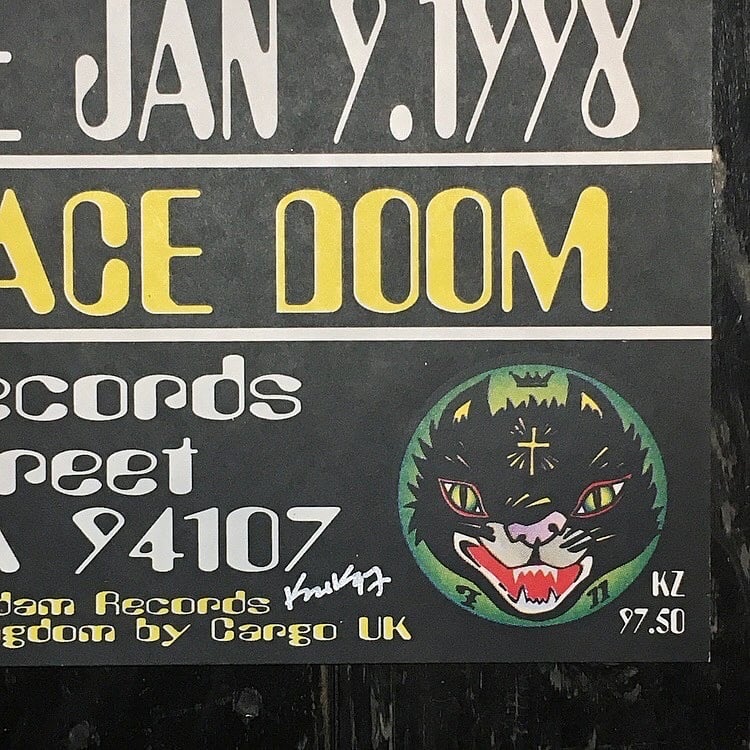 JAN 9.1998
ACE DOOM
ecords
reet
A 94107
dam Records
gdom by Cargo UK
7 11
KZ
97.50